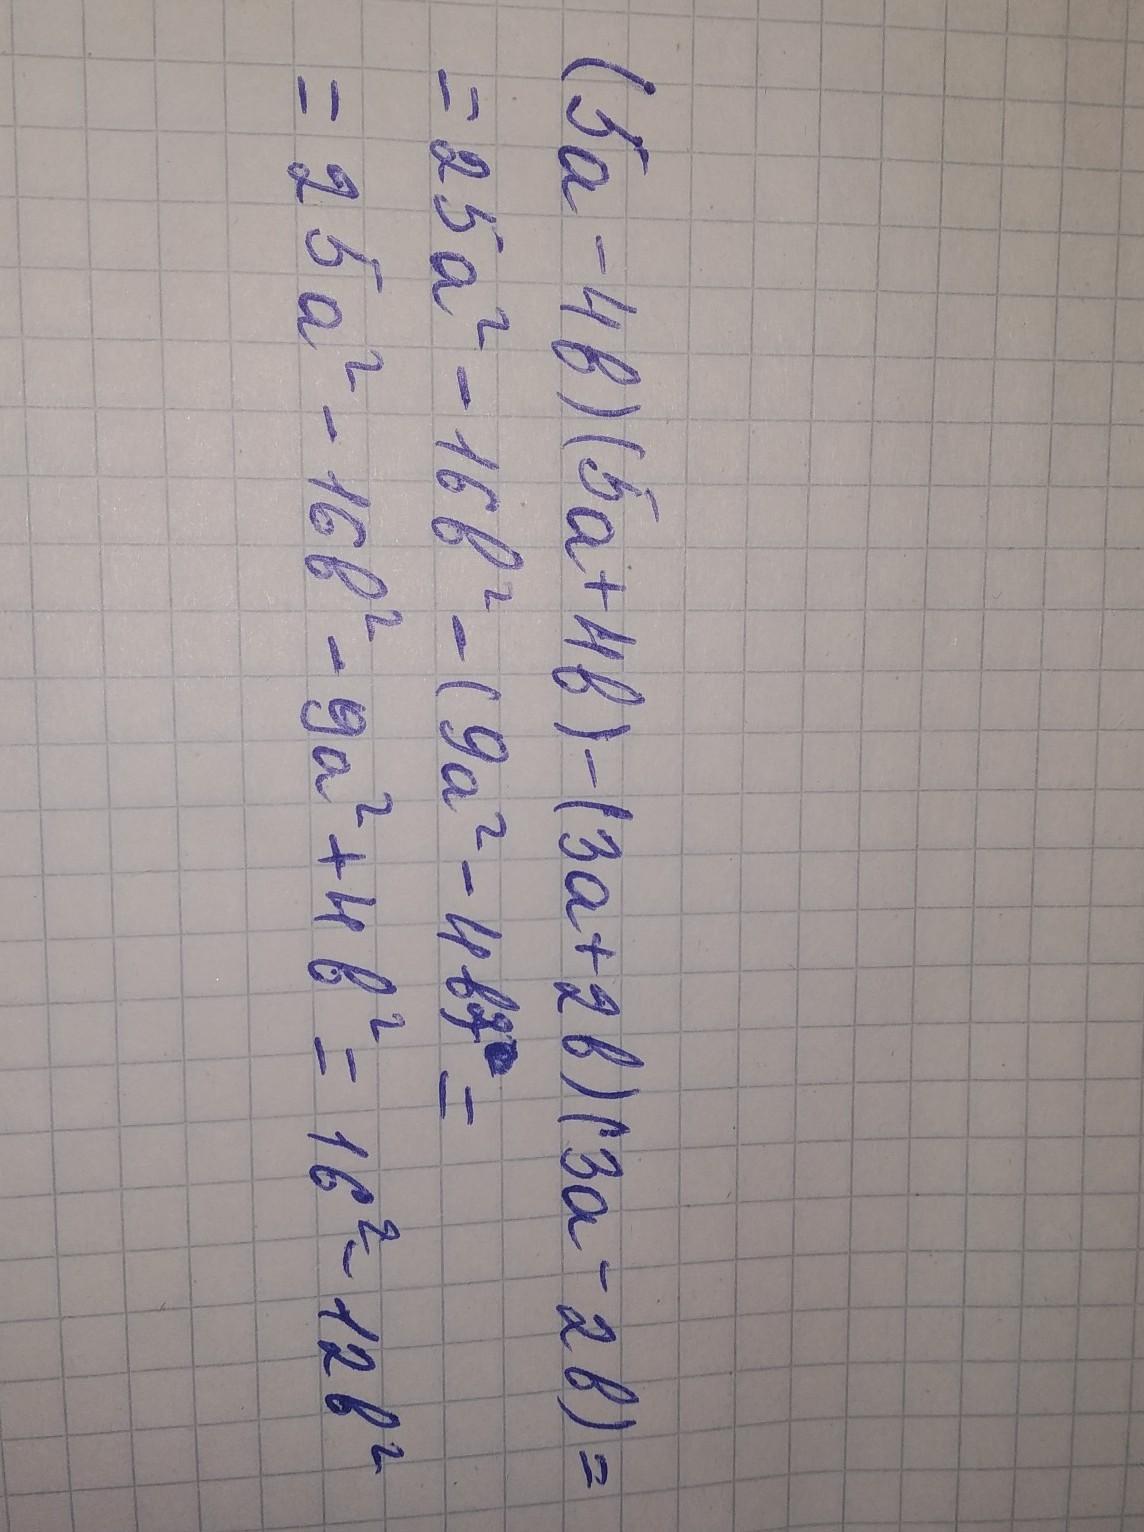 (5a - 4b)(5a + 4b) - (3a + 2b)(3a - 2b) =
= 25a² - 16b² - (9a² - 4b² =
= 25a² - 16b² - 9a² + 4b² = 16² - 12b²